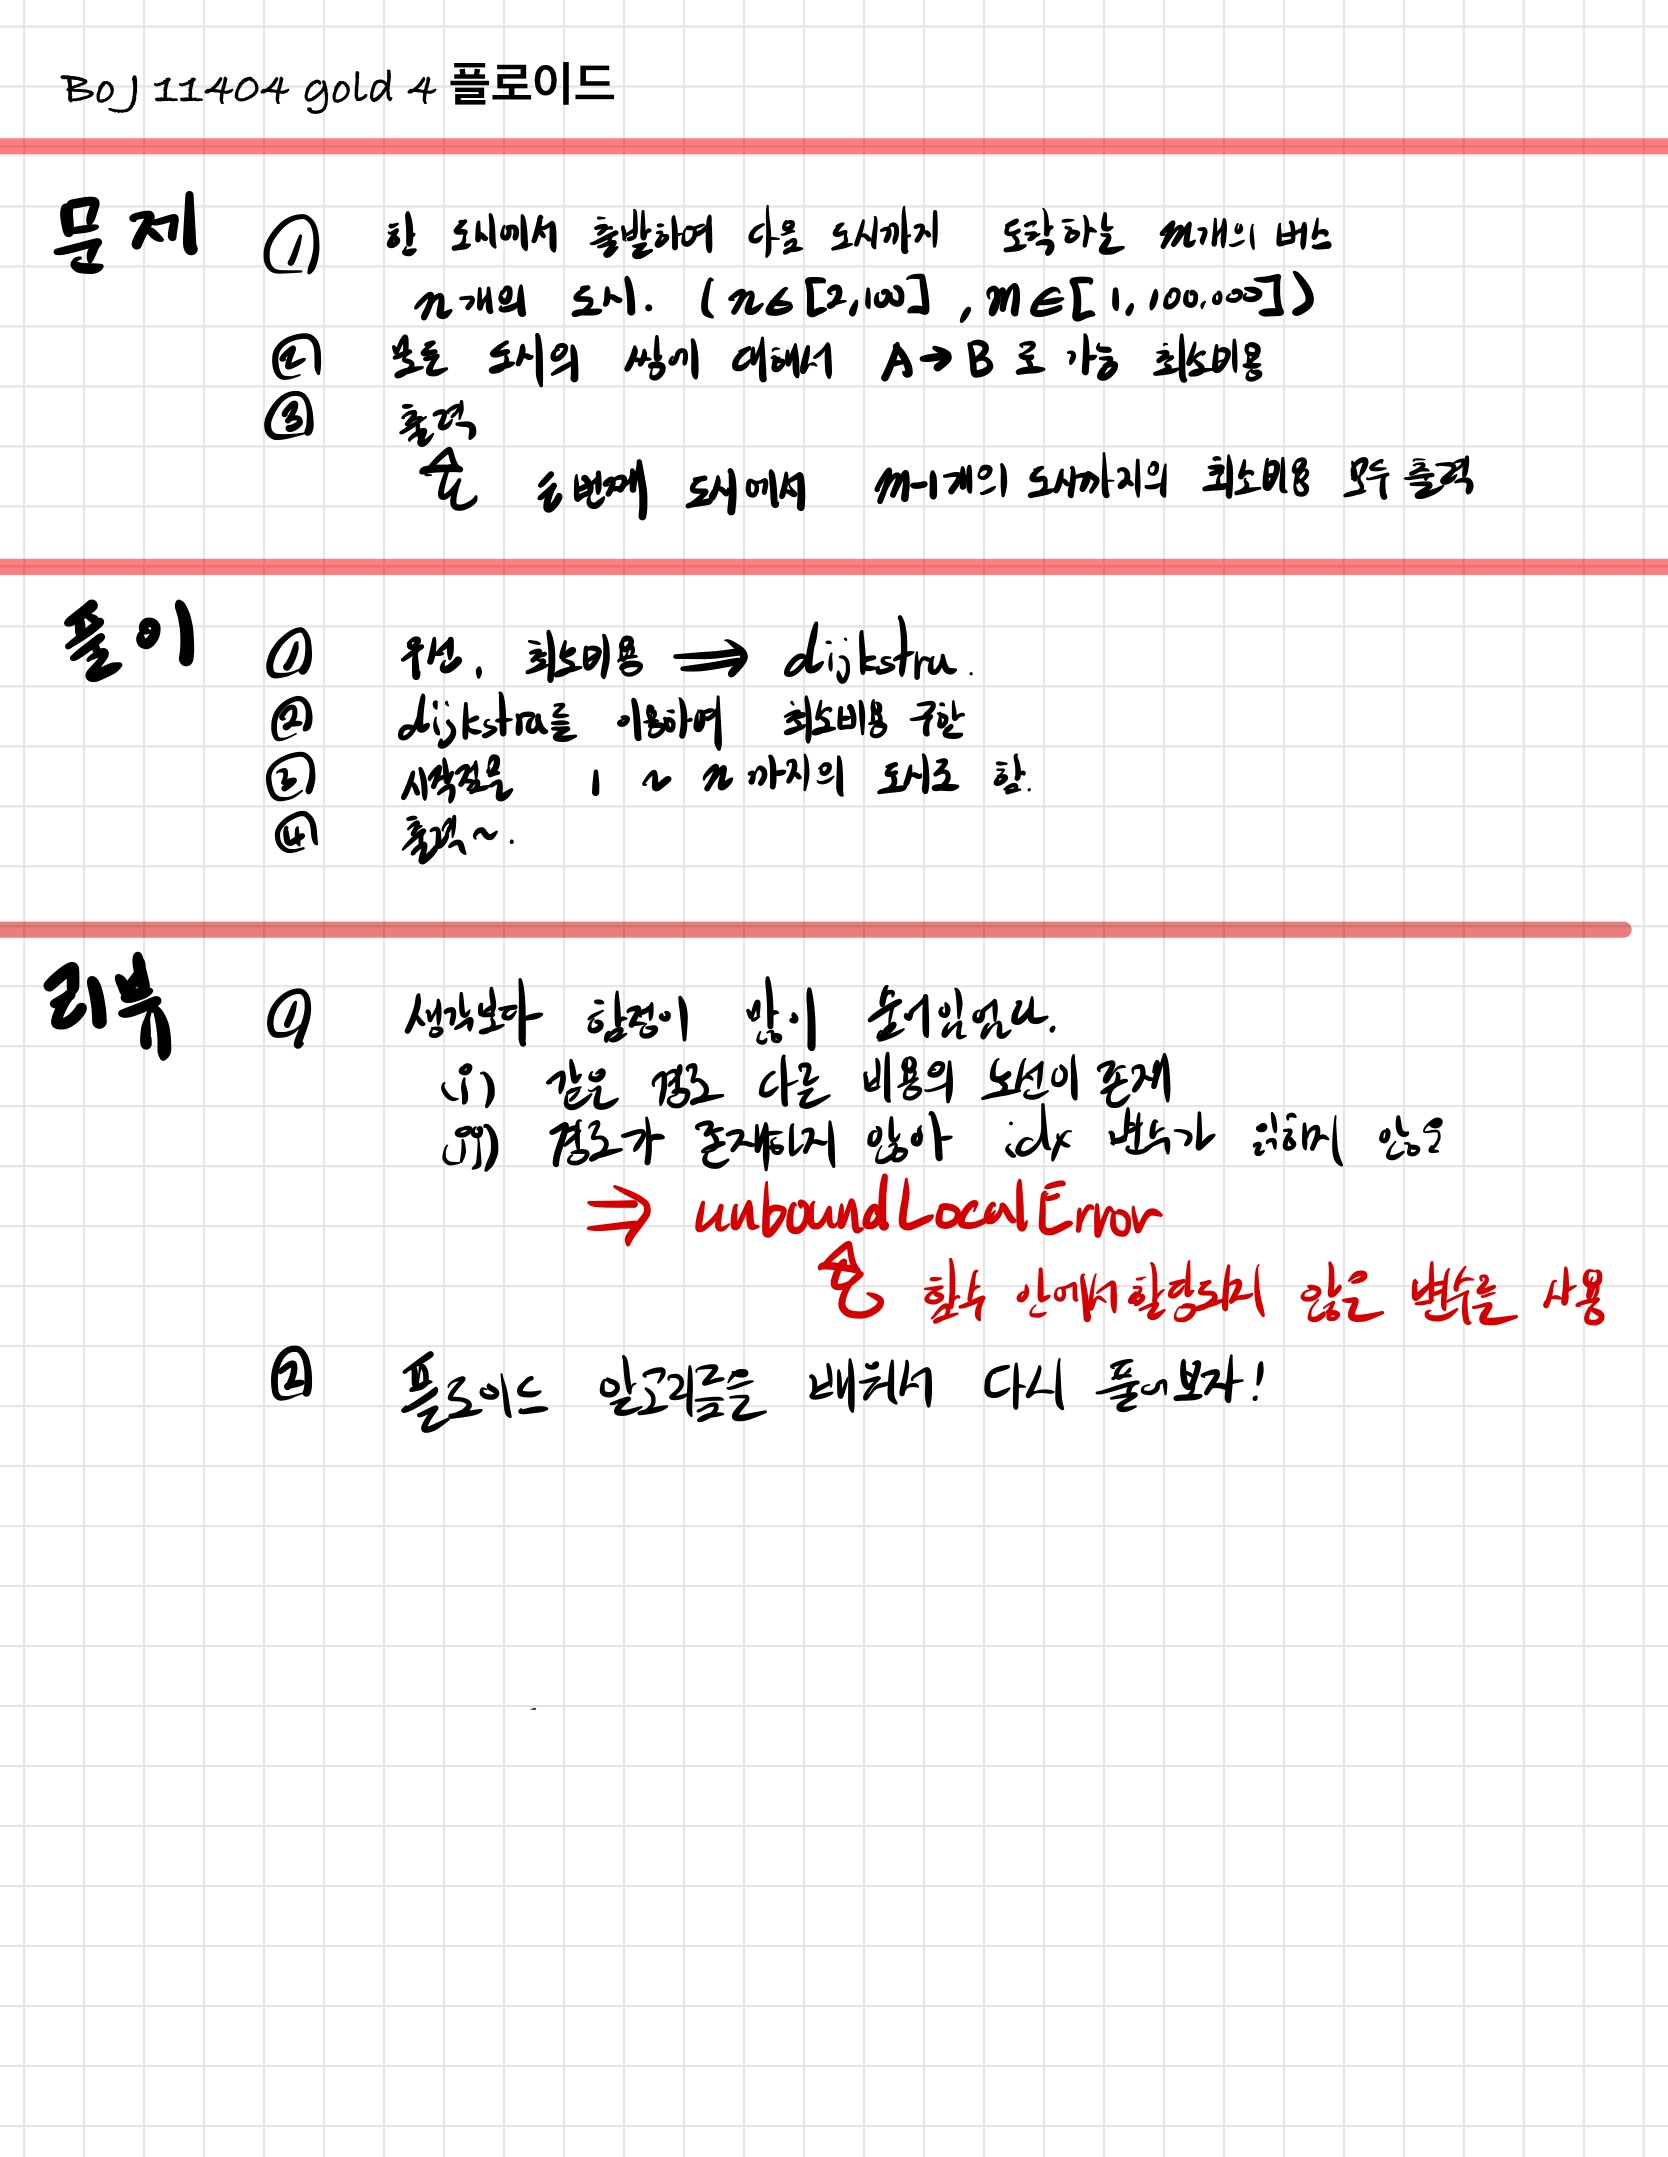 BOJ 11404 gold 4 플로이드
문제 ① 한 도시에서 출발하여 다음 도시까지 도착하는 m개의 버스
n개의 도시. (n∈[2,100], m∈[1,100,000])
② 모든 도시의 쌍에 대해서 A→B로 가능 최소비용
③ 출력
번째 도시에서 m-1개의 도시까지의 최소비용 모두 출력
풀이 ① 우선, 최소비용 ⇒ dijkstra.
② dijkstra를 이용하여 최소비용 구함
③ 시작점을 1 ~ n까지의 도시로 함.
④ 출력~.
리뷰 ① 생각보다 함정이 많이 숨어있었다.
i) 같은 경로 다른 비용의 노선이 존재
ii) 경로가 존재하지 않아 idx 변수가 읽히지 않음
⇒ unboundLocalError
함수 안에서 할당되지 않은 변수를 사용
② 플로이드 알고리즘을 배워서 다시 풀어보자!